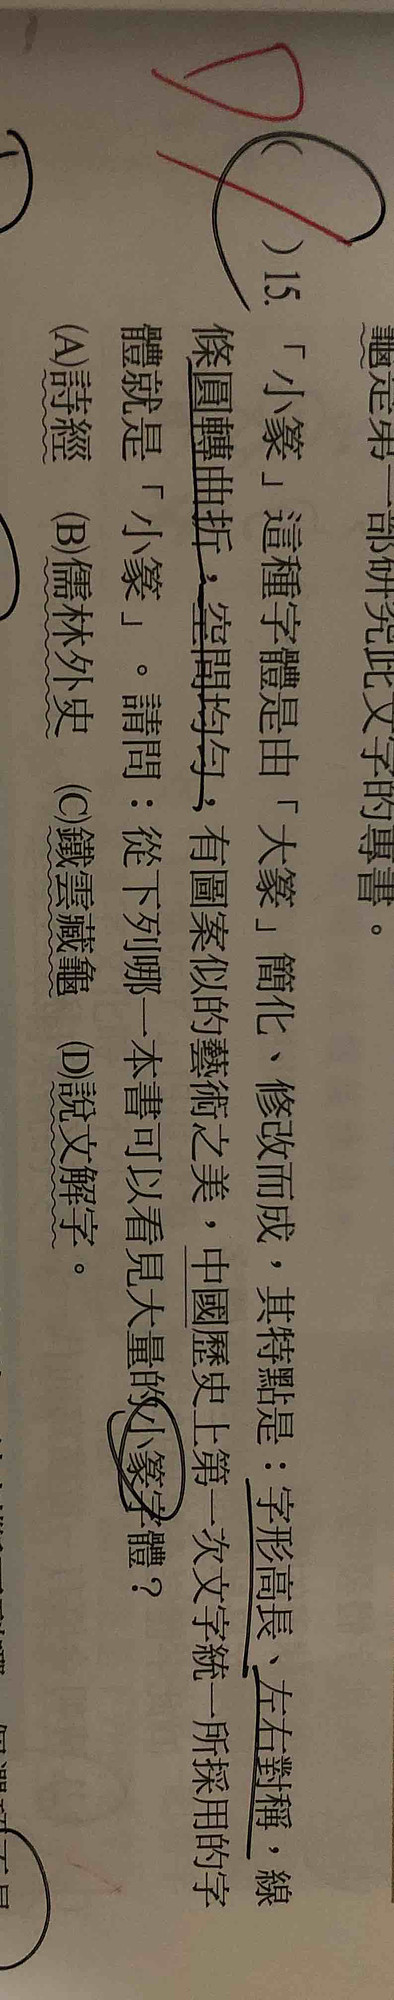 龜是第一部研究此文字的專書。
D
( C )15.「小篆」這種字體是由「大篆」簡化、修改而成，其特點是：字形高長、左右對稱，線
條圓轉曲折，空間均勻，有圖案似的藝術之美，中國歷史上第一次文字統一所採用的字
體就是「小篆」。請問：從下列哪一本書可以看見大量的小篆字體？
(A)詩經 (B)儒林外史 (C)鐵雲藏龜 (D)說文解字。